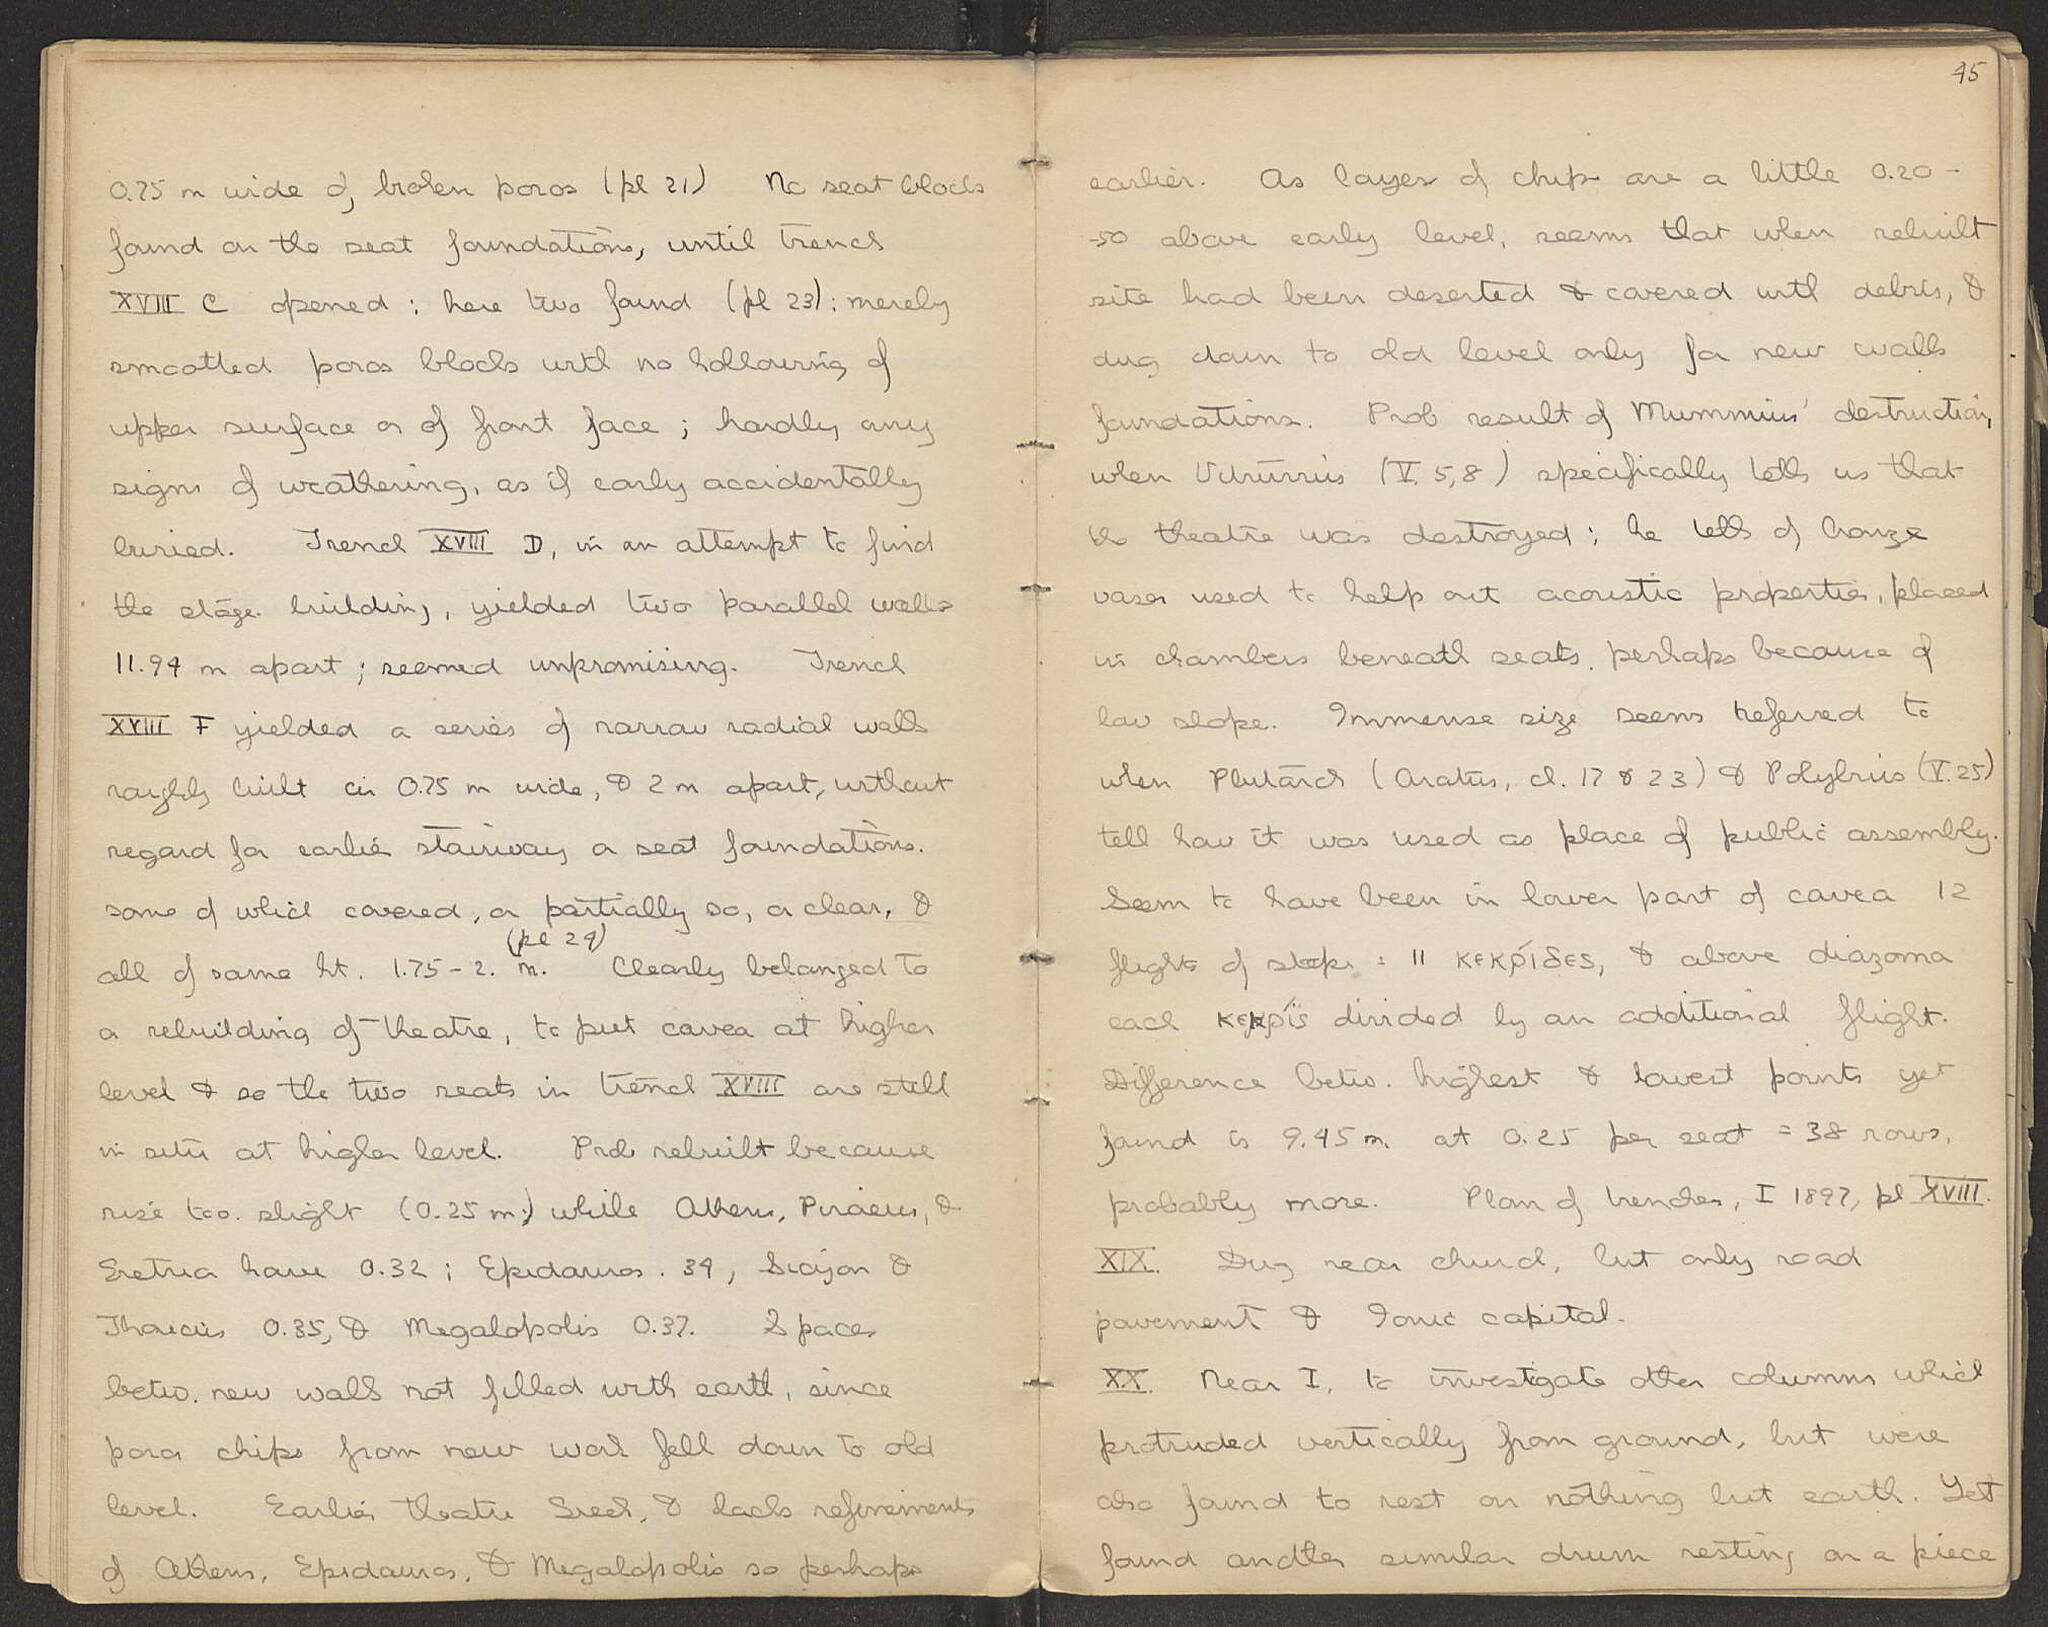 0.75 m wide of broken poros (pl 21) No seat blocks
found on the seat foundations, until trench
XVIII C opened ; here two found (pl 23) ; merely
smoothed poros blocks with no hollowing of
upper surface or of front face ; hardly any
signs of weathering, as if early accidentally
buried. Trench XVIII D, in an attempt to find
the stage building, yielded two parallel walls
11.94 m apart ; seemed unpromising. Trench
XVIII F yielded a series of narrow radial walls
roughly built cir 0.75 m wide, & 2 m apart, without
regard for earlier stairway or seat foundations.
some of which covered, or partially so, or clear, &
(pl 24)
all of same ht. 1.75 - 2. m. Clearly belonged to
a rebuilding of theatre, to put cavea at higher
level & so the two seats in trench XVIII are still
in situ at higher level. Prob rebuilt because
rise too slight (0.25 m.) while Athens, Piraeus, &
Eretria have 0.32 ; Epidauros .34, Sicyon &
Thoricus 0.35, & Megalopolis 0.37. Spaces
betw. new walls not filled with earth, since
poros chips from new work fell down to old
level. Earlier theatre Greek, & lacks refinements
of Athens, Epidauros, & Megalopolis so perhaps
45
earlier. As layers of chips are a little 0.20 -
-50 above early level, seems that when rebuilt
site had been deserted & covered with debris, &
dug down to old level only for new walls
foundations. Prob result of Mummius' destruction,
when Vitruvius (V. 5, 8) specifically tells us that
the theatre was destroyed ; he tells of bronze
vases used to help out acoustic properties, placed
in chambers beneath seats, perhaps because of
low slope. Immense size seems referred to
when Plutarch (Aratus, ch. 17 & 23) & Polybius (V. 25)
tell how it was used as place of public assembly.
Seem to have been in lower part of cavea 12
flights of steps = 11 κεκρίδες, & above diazoma
each κεκρίς divided by an additional flight.
Difference betw. highest & lowest points yet
found is 9.45 m at 0.25 per seat = 38 rows,
probably more. Plan of trenches, I 1897, pl XVIII.
XIX. Dug near church, but only road
pavement & Ionic capital.
XX. Near I, to investigate other columns which
protruded vertically from ground, but were
also found to rest on nothing but earth. Yet
found another similar drum resting on a piece